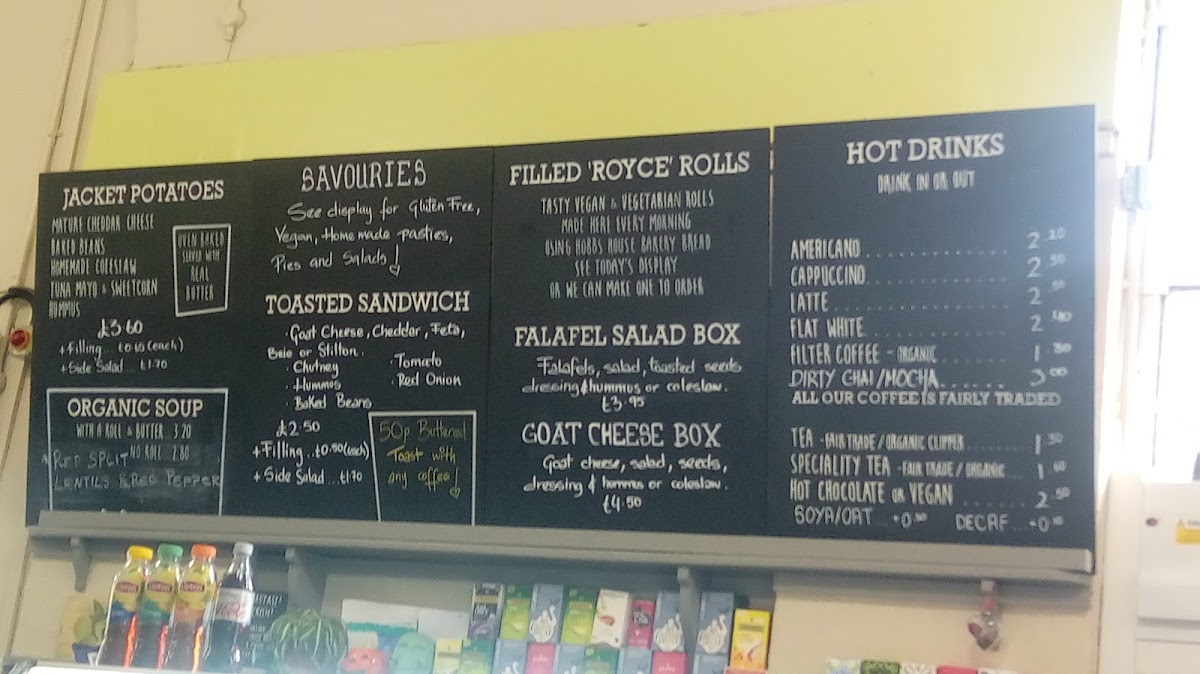 JACKET POTATOES
MATURE CHEDDAR CHEESE
BAKED BEANS
HOMEMADE COLESLAW
TUNA MAYO & SWEETCORN
HUMMUS
OVEN BAKED
SERVED WITH
REAL
BUTTER
£3.60
+ Filling £0.65 (each)
+ Side Salad £1.70
ORGANIC SOUP
WITH A ROLL & BUTTER .. 3.20
NO ROLL .. 2.80
* RED SPLIT
LENTILS & RED PEPPER
SAVOURIES
See display for Gluten Free,
Vegan, Home made pasties,
Pies and Salads!
TOASTED SANDWICH
· Goat Cheese, Cheddar, Feta,
Brie or Stilton.
· Chutney
· Hummus
· Baked Beans
· Tomato
· Red Onion
£2.50
+ Filling ... £0.50 (each)
+ Side Salad ... £1.70
50p Buttered
Toast with
any coffee!
FILLED 'ROYCE' ROLLS
TASTY VEGAN & VEGETARIAN ROLLS
MADE HERE EVERY MORNING
USING HOBBS HOUSE BAKERY BREAD
SEE TODAY'S DISPLAY
OR WE CAN MAKE ONE TO ORDER
FALAFEL SALAD BOX
Falafels, salad, toasted seeds
dressing & hummus or coleslaw.
£3.95
GOAT CHEESE BOX
Goat cheese, salad, seeds,
dressing & hummus or coleslaw.
£4.50
HOT DRINKS
DRINK IN OR OUT
AMERICANO ............... 2.10
CAPPUCCINO ............... 2.50
LATTE ............... 2.50
FLAT WHITE ............... 2.40
FILTER COFFEE - ORGANIC ....... 1.80
DIRTY CHAI/MOCHA ...... 3.00
ALL OUR COFFEE IS FAIRLY TRADED
TEA - FAIR TRADE / ORGANIC CLIPPER ....... 1.50
SPECIALITY TEA - FAIR TRADE / ORGANIC .... 1.60
HOT CHOCOLATE OR VEGAN ....... 2.50
SOYA/OAT ... +0.30 DECAF ... +0.10